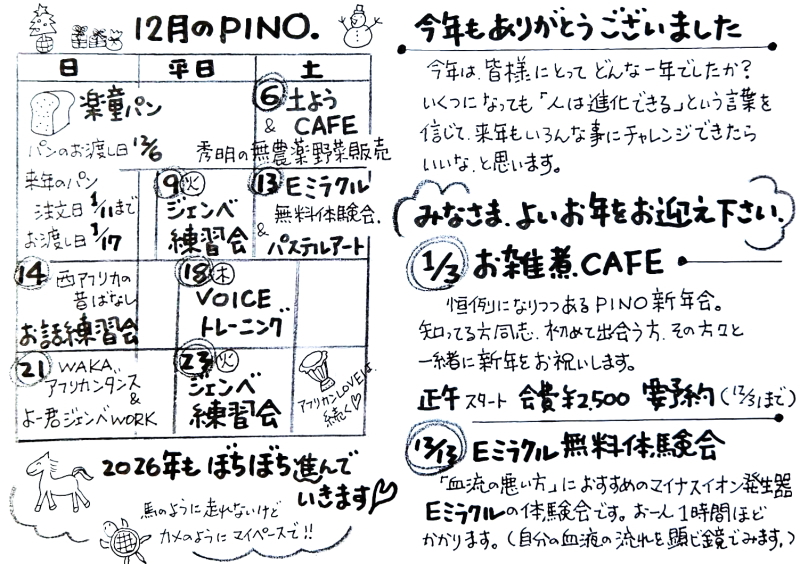 12月のPINO.
日 平日 土
楽童パン
パンのお渡し日 12/6
⑥ 土よう
& CAFE
秀明の無農薬野菜販売
来年のパン
注文日 1/11まで
お渡し日 1/17
⑨ ㊋
ジェンベ
練習会
⑬ Eミラクル
無料体験会.
&
パステルアート
⑭ 西アフリカの
昔ばなし
お話練習会
⑱ ㊍
VOICE
トレーニング
㉑ WAKA
アフリカンダンス
&
よー君ジェンベWORK
㉓ ㊋
ジェンベ
練習会
アフリカンLOVEは、
続く♡
2026年も ぼちぼち進んで
いきます♡
馬のように走れないけど
カメのように マイペースで!!
今年もありがとうございました
今年は、皆様にとって どんな一年でしたか?
いくつになっても「人は進化できる」という言葉を
信じて、来年もいろんな事にチャレンジできたら
いいな、と思います。
みなさま、よいお年をお迎え下さい.
1/3 お雑煮.CAFE
恒例になりつつあるPINO新年会。
知ってる方同志、初めて出会う方、その方々と
一緒に新年をお祝いします。
正午 スタート 会費¥2,500 要予約(12/31まで)
12/13 Eミラクル 無料体験会
「血流の悪い方」におすすめのマイナスイオン発生器
Eミラクルの体験会です。お一人1時間ほど
かかります。(自分の血液の流れを顕び鏡でみます。)